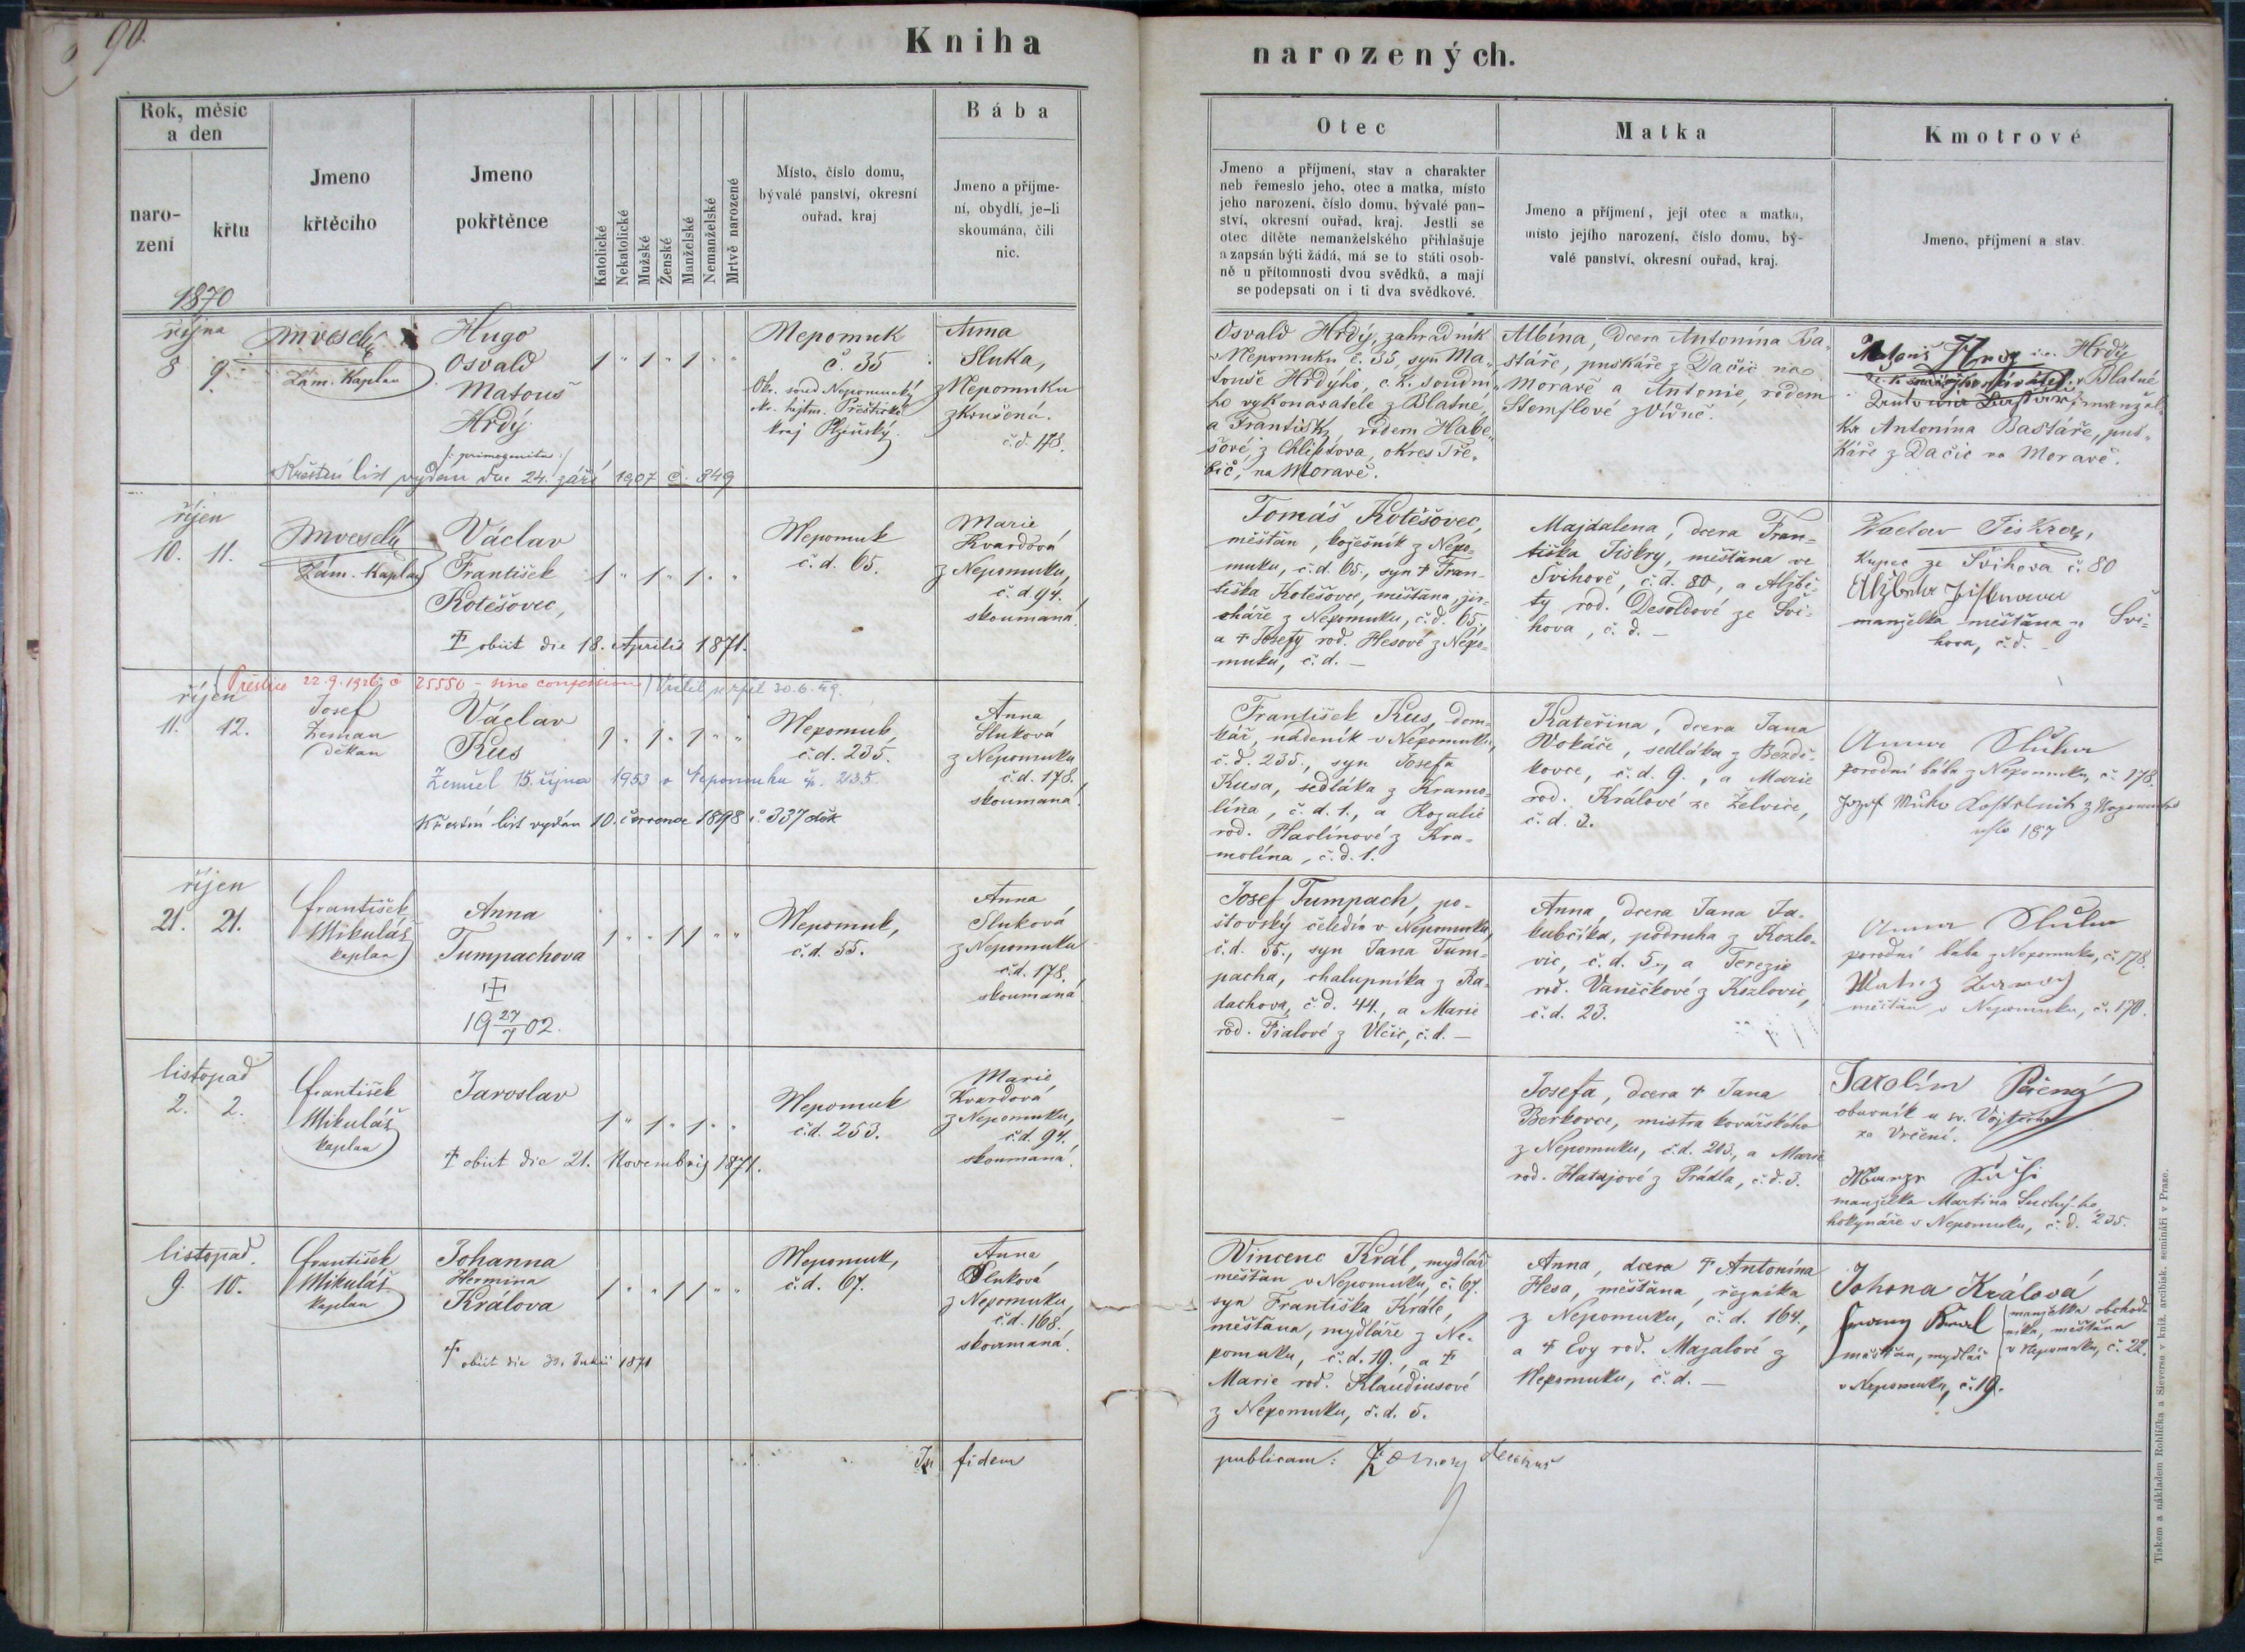 90.
Kniha narozených.
Rok, měsíc
a den
naro-
zení
křtu
Jmeno
křtěcího
Jmeno
pokřtěnce
Katolické
Nekatolické
Mužské
Ženské
Manželské
Nemanželské
Mrtvě narozené
Místo, číslo domu,
bývalé panství, okresní
ouřad, kraj
Bába
Jmeno a příjme-
ní, obydlí, je-li
skoumána, čili
nic.
Otec
Jmeno a příjmení, stav a charakter
neb řemeslo jeho, otec a matka, místo
jeho narození, číslo domu, bývalé pan-
ství, okresní ouřad, kraj. Jestli se
otec dítěte nemanželského přihlašuje
a zapsán býti žádá, má se to státi osob-
ně u přítomnosti dvou svědků, a mají
se podepsati on i ti dva svědkové.
Matka
Jmeno a příjmení, její otec a matka,
místo jejího narození, číslo domu, bý-
valé panství, okresní ouřad, kraj.
Kmotrové
Jmeno, příjmení a stav.
1870
října
8 9.
Zám. Kaplan
Hugo
Osvald
Matouš
Hrdý
/: primogenitus :/
1 " 1 " 1 " "
Nepomuk
č. 35
Okr. soud. Nepomucký
okr. hejtm. Přeštické
kraj Plzeňský.
Anna
Sluka,
z Nepomuku
zkoušená.
č.d. 178.
Křestní list vydán dne 24. září 1907 č. 349
Osvald Hrdý, zahradník
v Nepomuku č. 35, syn Ma-
touše Hrdýho, c.k. soudní-
ho vykonavatele z Blatné,
a Františky rodem Habe-
šové, z Chlístova, okres Tře-
bíč, na Moravě.
Albína, dcera Antonína Ba-
stáře, puškáře z Dačic na
Moravě a Antonie, rodem
Stemflové z Vídně.
Hrdý
v Blatné
manžel-
ka Antonína Bastáře, puš-
káře z Dačic na Moravě.
říjen
10. 11.
Zám. Kaplan
Václav
František
Kotěšovec,
1 " 1 " 1 " "
Nepomuk
č. d. 65.
Marie
Kvardová
z Nepomuku,
č. d. 94.
skoumaná.
† obiit die 18. Aprilis 1871.
Tomáš Kotěšovec,
měšťan, kožešník z Nepo-
muku, č.d. 65., syn † Fran-
tiška Kotěšovce, měšťana, jir-
cháře z Nepomuku, č.d. 65.,
a † Josefy rod. Hesové z Nepo-
muku, č.d. —
Majdalena, dcera Fran-
tiška Jiskry, měšťana ve
Švihově, č.d. 80, a Alžbě-
ty rod. Desoldové ze Švi-
hova, č. d. —
Kupec ze Švihova č. 80
manželka měšťana ze Švi-
hova, č.d. —
Přeštice 22.9.1926 č 25550 - sine confession / Vrátil se zpět 30.6.49.
říjen
11. 12.
Josef
Zeman
děkan
Václav
Kus
1 " 1 " 1 " "
Nepomuk,
č.d. 235.
Anna
Sluková
z Nepomuku
č.d. 178.
skoumaná.
Zemřel 15. října 1953 v Nepomuku čp. 235.
Křestní list vydán 10. července 1898 č. 337
František Kus, dom-
kář, nádeník v Nepomuku,
č.d. 235., syn Josefa
Kusa, sedláka z Kramo-
lína, č.d. 1., a Rozalie
rod. Havlínové z Kra-
molína, č.d. 1.
Kateřina, dcera Jana
Wokáče, sedláka z Bezdě-
kovce, č.d. 9., a Marie
rod. Králové ze Želvice,
č.d. 2.
Anna Sluka
porodní bába z Nepomuku, č. 178.
187
říjen
21. 21.
František
Mikuláš
kaplan
Anna
Tumpachova
1 " " 1 1 " "
Nepomuk,
č.d. 55.
Anna
Sluková
z Nepomuku
č.d. 178.
skoumaná.
†
19 27/7 02.
Josef Tumpach, po-
štovský čeledín v Nepomuku,
č.d. 55., syn Jana Tum-
pacha, chalupníka z Ra-
dachova, č.d. 44., a Marie
rod. Fialové z Vlčic, č.d. —
Anna, dcera Jana Ja-
kubčíka, podruha z Kozlo-
vic, č.d. 5., a Terezie
rod. Vaníčkové z Kozlovic,
č.d. 23.
Anna Sluka
porodní bába z Nepomuku, č. 178.
měšťan v Nepomuku, č. 170.
listopad
2. 2.
František
Mikuláš
kaplan
Jaroslav
1 " 1 " 1 " "
Nepomuk
č.d. 253.
Marie
Kvardová
z Nepomuku,
č.d. 94.,
skoumaná.
† obiit die 21. Novembris 1871.
—
Josefa, dcera † Jana
Berkovce, mistra kovářského
z Nepomuku, č.d. 203., a Marie
rod. Hatajové z Prádla, č.d. 3.
obuvník u sv. Vojtěcha
ze Vrčení.
manželka Martina Suchý-ho
hokynáře v Nepomuku, č.d. 235.
listopad.
9. 10.
František
Mikuláš
kaplan
Johanna
Hermina
Králova
1 " " 1 1 " "
Nepomuk,
č.d. 67.
Anna
Sluková
z Nepomuku,
č.d. 168.
skoumaná.
† obiit die 30. Julii 1871
Wincenc Král, mydlář
měšťan v Nepomuku, č. 67.
syn Františka Krále,
měšťana, mydláře z Ne-
pomuku, č.d. 19., a †
Marie rod. Klaudiusové
z Nepomuku, č.d. 5.
Anna, dcera † Antonína
Hesa, měšťana, řezníka
z Nepomuku, č.d. 164.,
a † Evy rod. Mazalové z
Nepomuku, č.d. —
Johona Králová
manželka obchod-
níka, měšťana
v Nepomuku, č. 22.
měšťan, mydlář
v Nepomuku, č. 19.
In fidem publicam:
Tiskem a nákladem Rohlíčka a Sieverse v kníž. arcibisk. semináři v Praze.